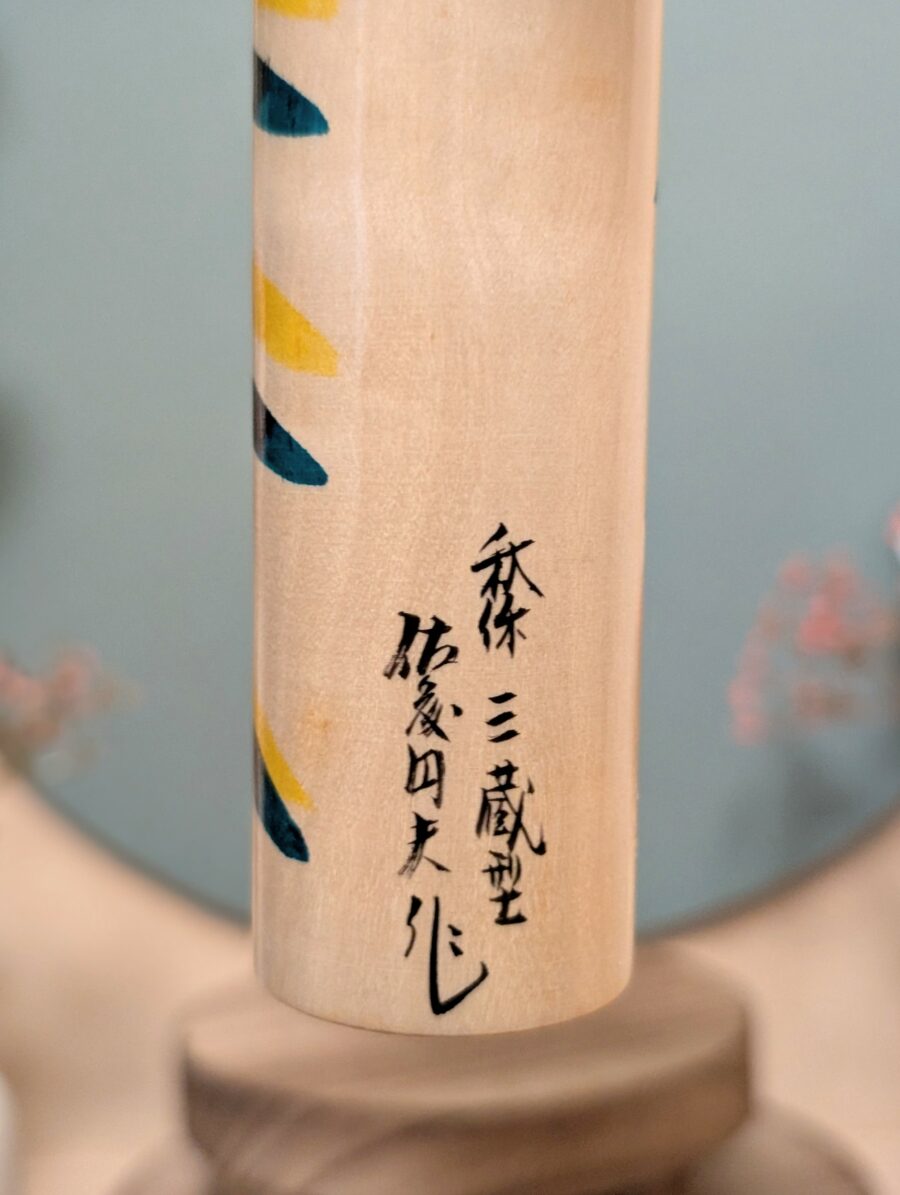 秋保 三蔵型
佐藤円夫作